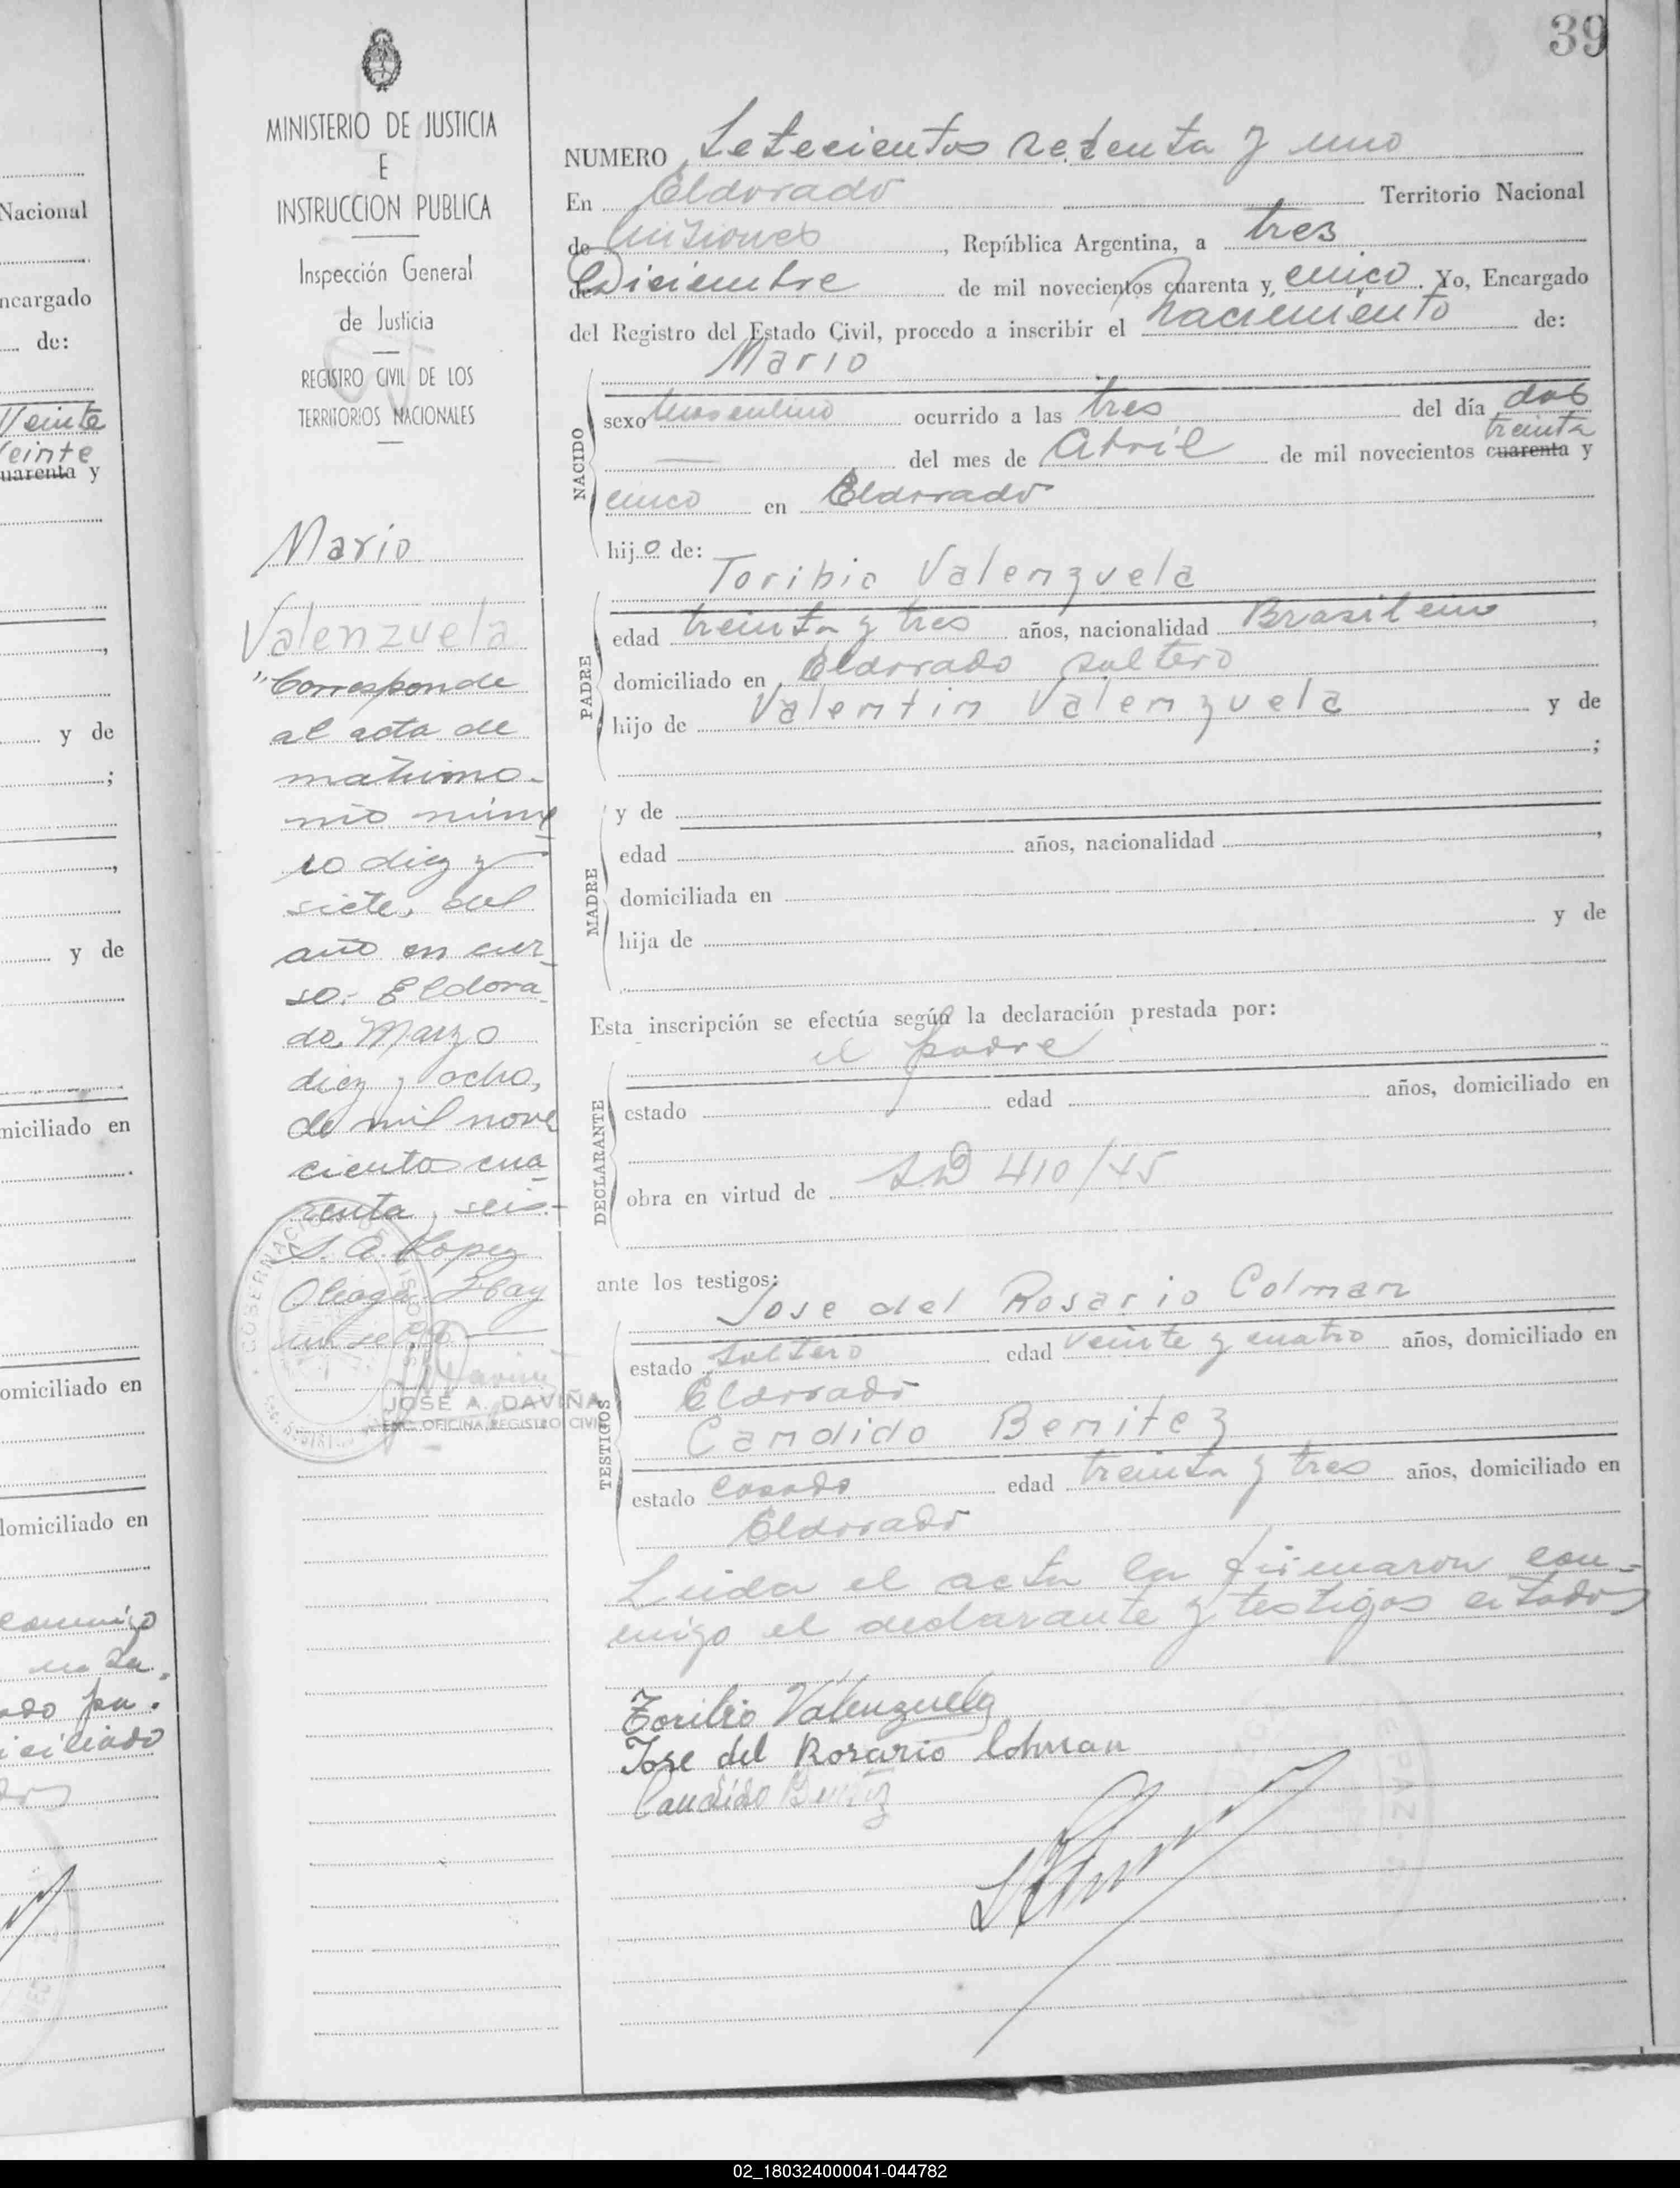 Nacional
ncargado
de:
Veinte
Veinte
uarenta y
y de
;
,
,
y de
miciliado en
omiciliado en
lomiciliado en
conmigo
ado pa-
iciliado
39
MINISTERIO DE JUSTICIA
E
INSTRUCCION PUBLICA
Inspección General
de Justicia
REGISTRO CIVIL DE LOS
TERRITORIOS NACIONALES
Mario
Valenzuela
"Corresponde
al acta de
matrimo-
nio núme
ro diez y
siete, del
año en cur-
so.- Eldora-
do, Marzo
diez y ocho,
de mil nove
cientos cua-
renta y seis.-
S. A. Lopez
JOSE A. DAVIÑA
ENC. OFICINA REGISTRO CIVIL
NUMERO Setecientos setenta y uno
En Eldorado Territorio Nacional
de Misiones, República Argentina, a tres
de Diciembre de mil novecientos cuarenta y cinco. Yo, Encargado
del Registro del Estado Civil, procedo a inscribir el nacimiento de:
Mario
NACIDO
sexo Masculino ocurrido a las tres del día dos
treinta
— del mes de Abril de mil novecientos cuarenta y
cinco en Eldorado
hijo de:
Toribio Valenzuela
PADRE
edad treinta y tres años, nacionalidad Brasileño,
domiciliado en Eldorado soltero
hijo de Valentin Valenzuela y de
;
MADRE
y de
edad años, nacionalidad ,
domiciliada en
hija de y de
Esta inscripción se efectúa según la declaración prestada por:
el padre
DECLARANTE
estado edad años, domiciliado en
obra en virtud de SD 410/45
ante los testigos:
Jose del Rosario Colman
TESTIGOS
estado soltero edad veinte y cuatro años, domiciliado en
Eldorado
Candido Benitez
estado casado edad treinta y tres años, domiciliado en
Eldorado
Leida el acta la firmaron con-
migo el declarante y testigos citados
Toribio Valenzuela
Jose del Rosario Colman
Candido Benitez
02_180324000041-044782